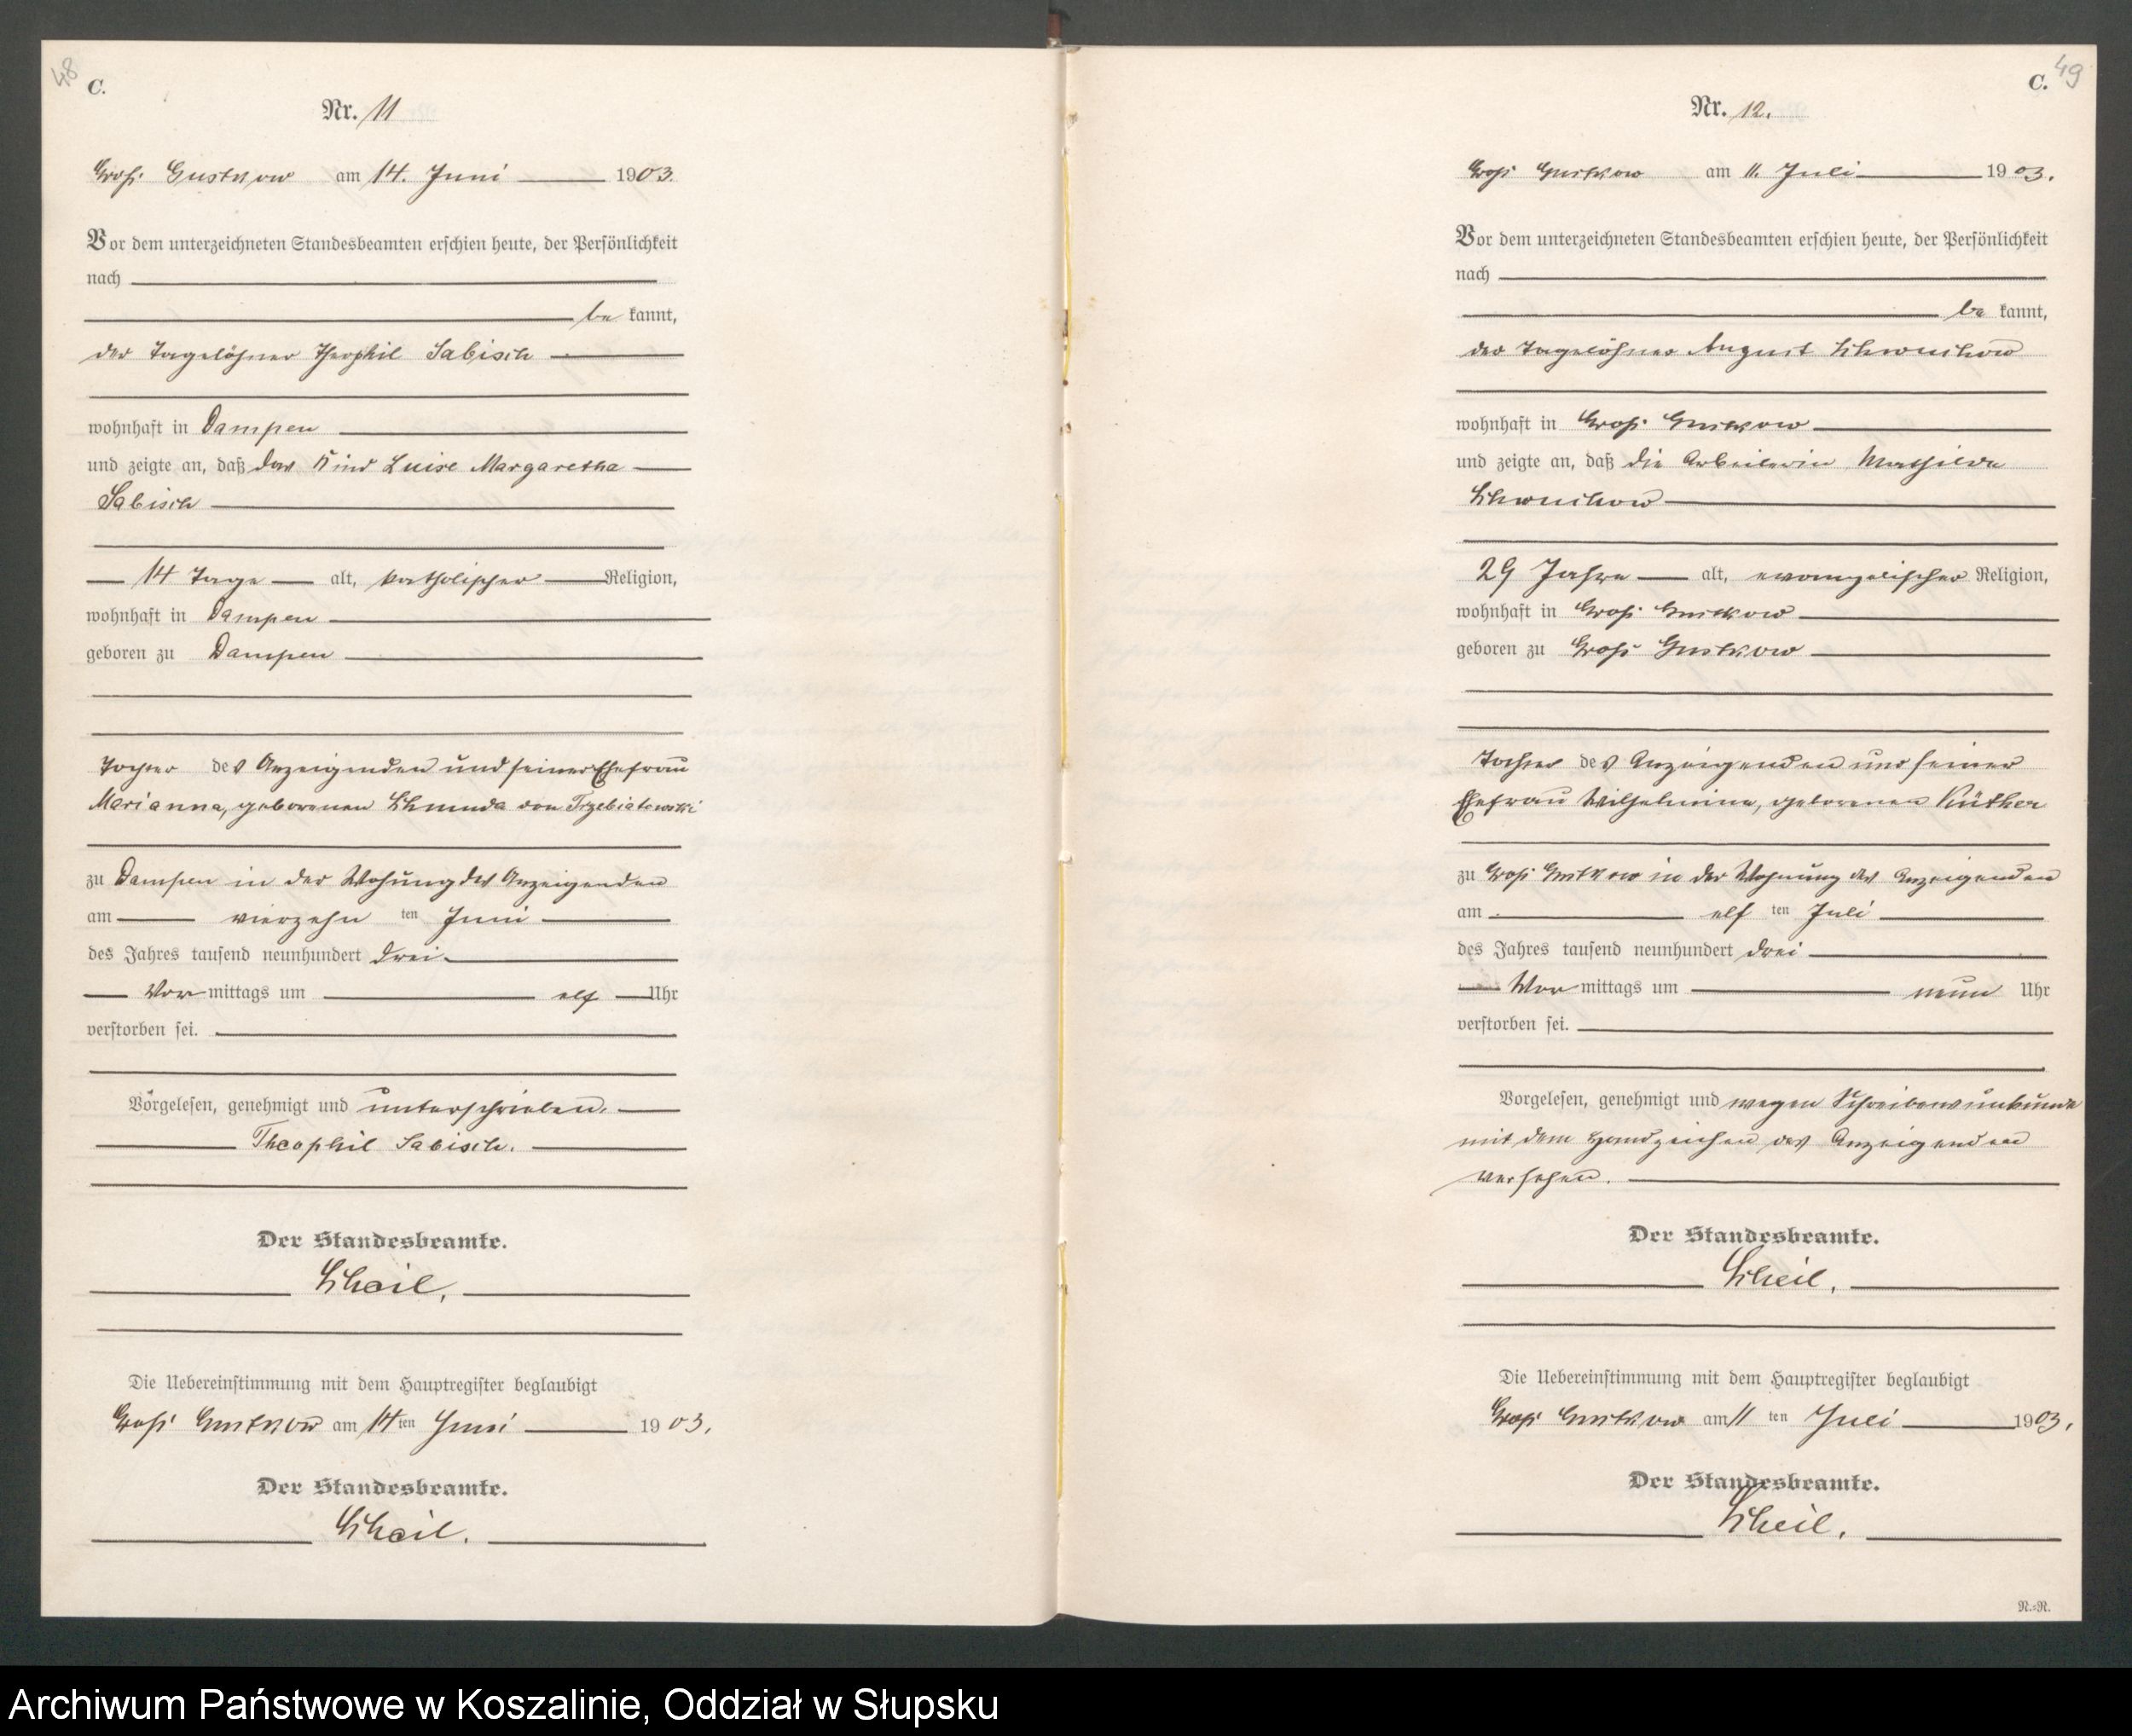 48
C.
Nr. 11
Groß Gustkow am 14. Juni 1903.
Vor dem unterzeichneten Standesbeamten erschien heute, der Persönlichkeit
nach
be kannt,
der Tagelöhner Theophil Sabisch
wohnhaft in Dampen
und zeigte an, daß das Kind Luise Margaretha
Sabisch
14 Tage alt, katholischer Religion,
wohnhaft in Dampen
geboren zu Dampen
Tochter des Anzeigenden und seiner Ehefrau
Marianna, geborenen Schmuda von Trzebiatowski
zu Dampen in der Wohung des Anzeigenden
am vierzehn ten Juni
des Jahres tausend neunhundert drei
Vor mittags um elf Uhr
verstorben sei.
Vorgelesen, genehmigt und unterschrieben.
Theophil Sabisch.
Der Standesbeamte.
Scheil.
Die Uebereinstimmung mit dem Hauptregister beglaubigt
Groß Gustkow am 14 ten Juni 1903.
Der Standesbeamte.
Scheil.
49
C.
Nr. 12.
Groß Gustkow am 11. Juli 1903.
Vor dem unterzeichneten Standesbeamten erschien heute, der Persönlichkeit
nach
be kannt,
der Tagelöhner August
wohnhaft in Groß Gustkow
und zeigte an, daß die Arbeiterin Mathilde
29 Jahre alt, evangelischer Religion,
wohnhaft in Groß Gustkow
geboren zu Groß Gustkow
Tochter des Anzeigenden und seiner
Ehefrau Wilhelmine, geborenen Küther
zu Groß Gustkow in der Wohnung des Anzeigenden
am elf ten Juli
des Jahres tausend neunhundert drei
Vor mittags um neun Uhr
verstorben sei.
Vorgelesen, genehmigt und wegen Schreibensunkunde
mit dem Handzeichen des Anzeigenden
versehen.
Der Standesbeamte.
Scheil.
Die Uebereinstimmung mit dem Hauptregister beglaubigt
Groß Gustkow am 11 ten Juli 1903.
Der Standesbeamte.
Scheil.
N.=N.
Archiwum Państwowe w Koszalinie, Oddział w Słupsku